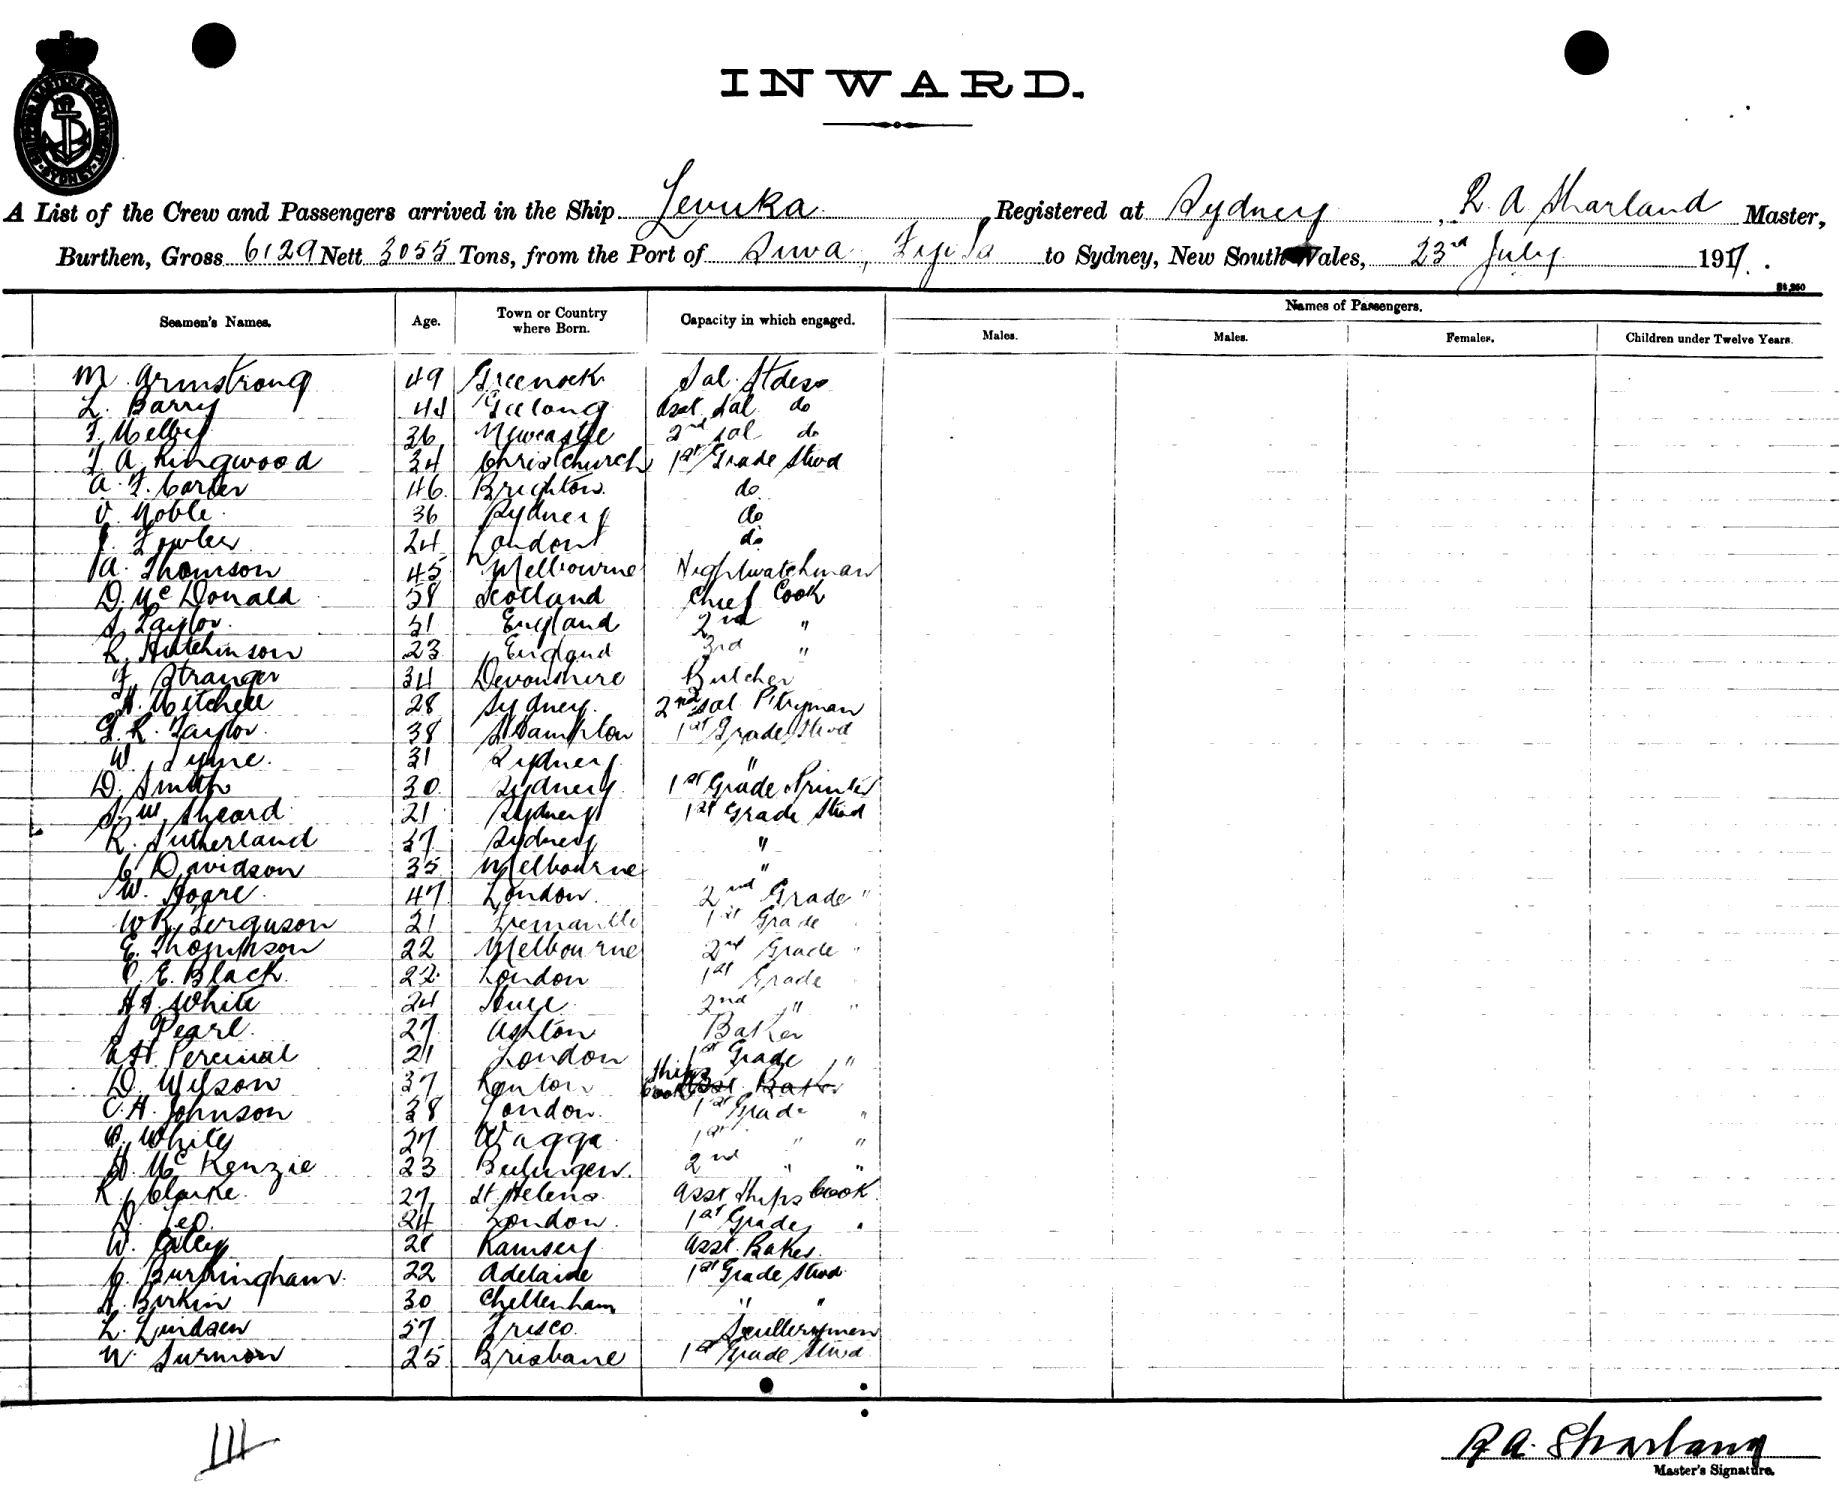 INWARD.
SHIPPING MASTERS DEPARTMENT SYDNEY
A List of the Crew and Passengers arrived in the Ship Levuka Registered at Sydney, R. A Sharland Master,
Burthen, Gross 6129 Nett 3055 Tons, from the Port of Suva, Fiji to Sydney, New South Wales, 23rd July 1917.
Seamen's Names. Age. Town or Country where Born. Capacity in which engaged. Names of Passengers.
Males. Males. Females. Children under Twelve Years.
M. Armstrong 49 Greenock Sal. Stdess
L. Barry 44 Geelong Asst Sal do
F. Melby 36 Newcastle 2nd Sal do
F. A. Ringwood 34 Christchurch 1st Grade Stwd
A. F. Carter 46 Brighton do
V. Noble 36 Sydney do
J. Fowler 24 London do
A. Thomson 45 Melbourne Nightwatchman
D. McDonald 58 Scotland Chief Cook
S. Taylor 31 England 2nd "
R. Hutchinson 23 England 3rd "
F. Stranger 34 Devonshire Butcher
H. Mitchell 28 Sydney 2nd Sal Ptryman
G. R. Taylor 38 SHampton 1st Grade Stwd
W. Lyne 31 Sydney "
D. Smith 30 Sydney 1st Grade Printer
S. W. Sheard 21 Sydney 1st Grade Stwd
R. Sutherland 37 Sydney "
C. Davidson 35 Melbourne "
W. Hoare 47 London 2nd Grade "
W R. Ferguson 21 Fremantle 1st Grade
E. Thompson 22 Melbourne 2nd Grade "
C. E. Black 22 London 1st Grade
H. H. White 24 Hull 2nd " "
J Pearl 27 Ashton Baker
E H. Percival 21 London 1st Grade "
D. Wilson 37 Ships Cook Asst. Baker
C. H. Johnson 38 London 1st Grade "
White 27 Wagga 1st " "
H. McKenzie 23 2nd " "
R. Clarke 27 St Helens Asst Ships Cook
D. Leo 24 London 1st Grade "
W. 28 Ramsey Asst. Baker
C. Burningham 22 Adelaide 1st Grade Stwd
A. Birkin 30 Cheltenham " "
L. Lindsen 57 Frisco Scullerymen
W. Surmon 25 Brisbane 1st Grade Stwd
III
R. A. Sharland
Master's Signature.